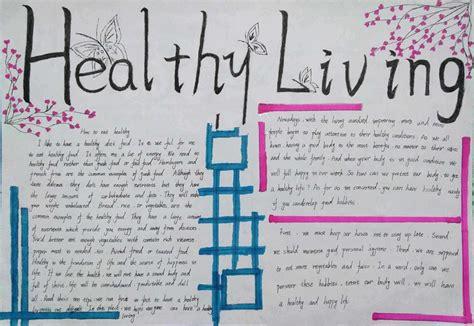 Healthy Living
How to eat healthy
I like to have a healthy diet food. It is useful for me
to eat healthy food. It offers me a lot of energy. We need to
healthy food rather than junk food or fast food. Hamburgers and
french fries are the common examples of junk food. Although they
taste delicious, they do's have enough nutrients but they have
the large amount of carbohydrate and fats. They will make
your weight unbalanced. Bread, rice or vegetables are the
common examples of the healthy food. They have a large amount
of nutrients which provide you energy and away from diseases
You'd better eat enough vegetables with contain rich vitamins
proper meat is needed too. Avoid fried or toasted food.
Healthy is the foundation of life and the source of happiness in
life. If we lose the health we will not have a sound body and
full of shine, life will be unendurable and dull
all. And there are tips we can find in fact to have a healthy
living!
Nowadays with the living standard improving more and more
people begin to play attention to their healthy conditions. As we all
known, having a good body is the most benefits no matter to their own
and the whole family. And when your body is in good condition we
will full happy in our work. So how can we protect our body to get
a healthy life? As far as I'm concerned, you can have healthy easily
if you can develop good habbits.
First, we must keep our hours not to stay up late. Second
we should maintain good personal hygiene. Third we are supposed
to eat more vegetables and fruits. In a word, only can we
permise these habbits, ensure our body will, we will have
a healthy and happy life.